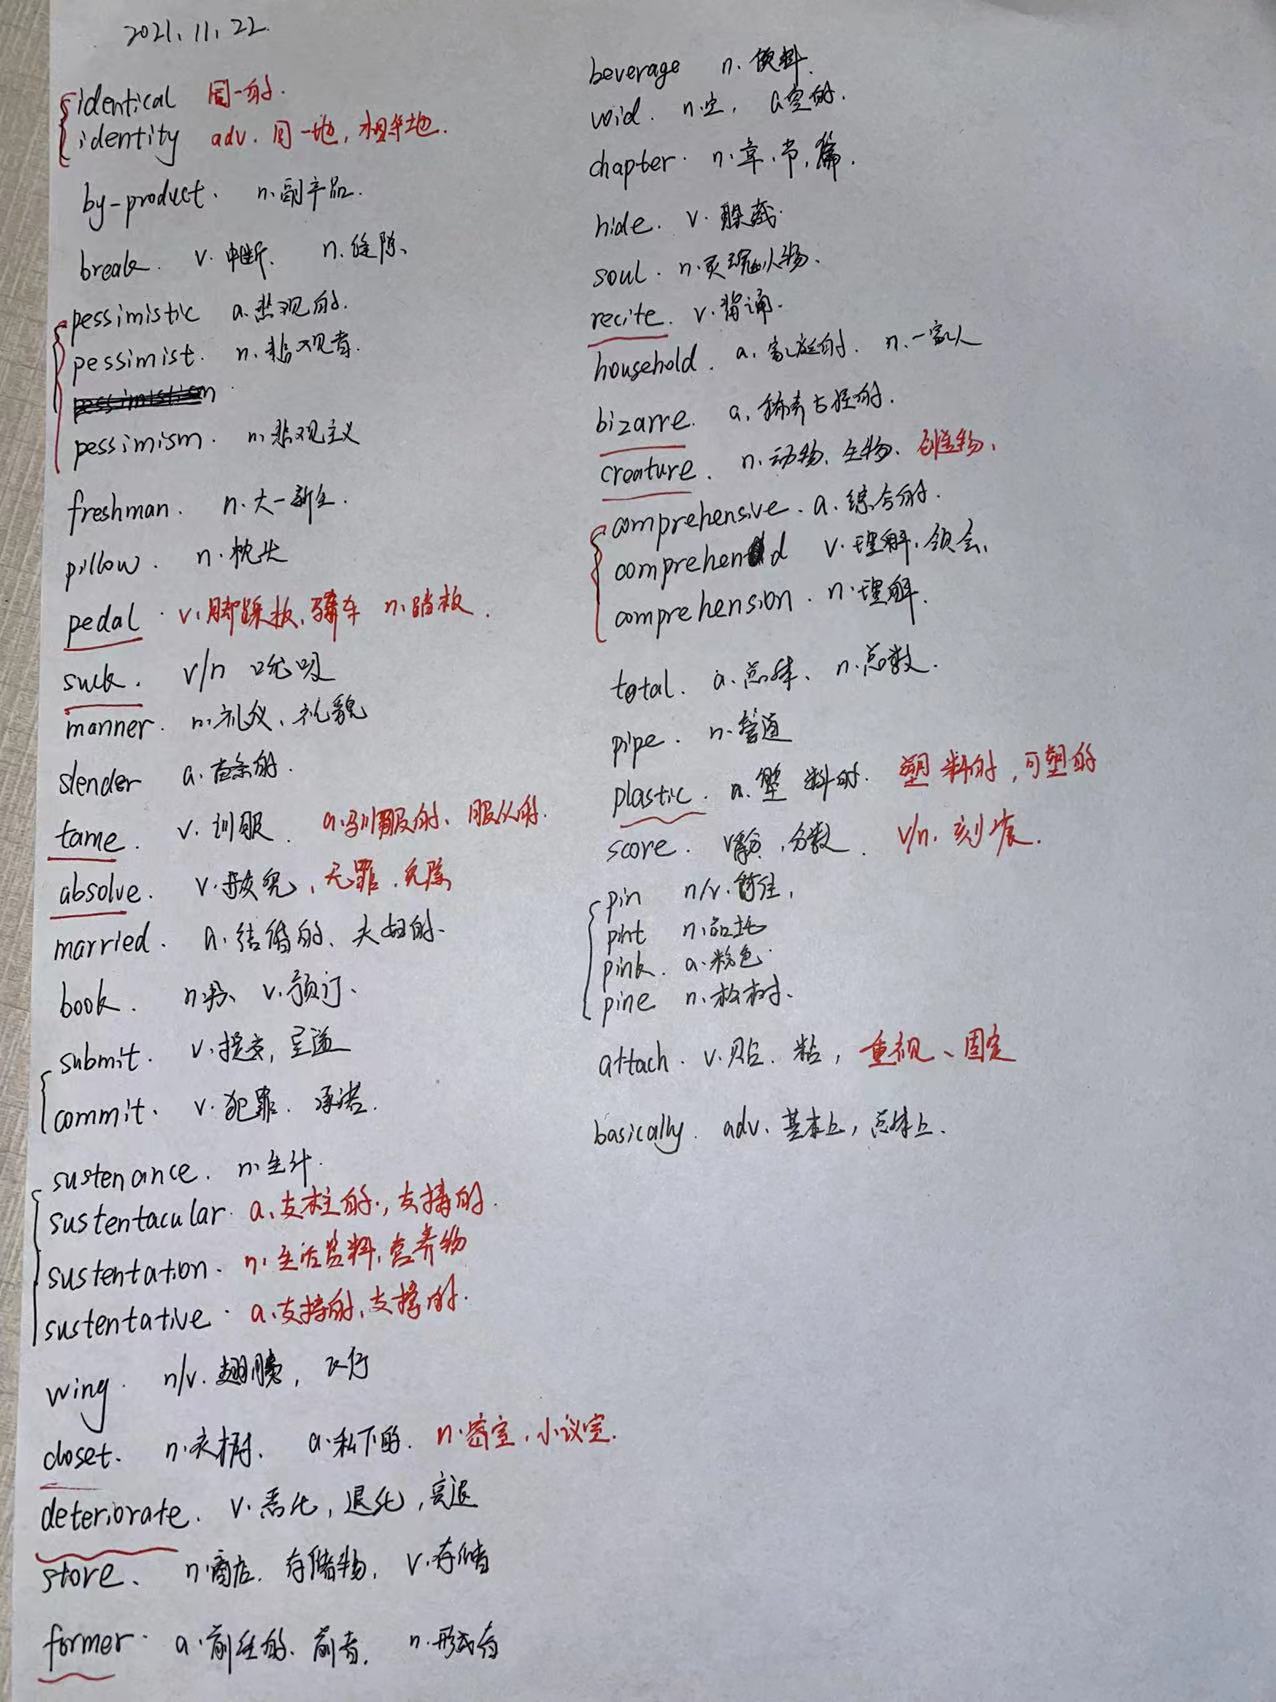 2021.11.22.
identical 同一的.
identity adv.同一地,相等地.
by-product. n.副产品.
break. v.中断. n.缝隙、
pessimistic a.悲观的.
pessimist. n.悲观者.
pessimism. n.悲观主义
freshman. n.大一新生.
pillow. n.枕头
pedal. v.脚踩板、骑车 n.踏板.
suck. v/n 吮吸
manner. n.礼仪、礼貌
slender a.苗条的.
tame. v.训服 a.驯服的、服从的.
absolve. v.赦免,无罪.免除
married. a.结婚的、夫妇的.
book. n.书、v.预订.
submit. v.提交,呈递
commit. v.犯罪.承诺.
sustenance. n.生计.
sustentacular. a.支柱的.,支撑的.
sustentation. n.生活资料,营养物
sustentative. a.支持的,支撑的.
wing. n/v.翅膀,飞行
closet. n.衣橱. a.私下的. n.密室,小议室.
deteriorate. v.恶化,退化,衰退
store. n.商店.存储物, v.存储
former. a.前任的、前者. n.形成者
beverage n.饮料.
void. n.空, a.空的.
chapter. n.章.节,篇.
hide. v.躲藏.
soul. n.灵魂人物.
recite. v.背诵.
household. a.家庭的. n.一家人
bizarre. a.稀奇古怪的.
creature. n.动物、生物、创造物、
comprehensive. a.综合的.
comprehend v.理解.领会.
comprehension. n.理解.
total. a.总体、n.总数.
pipe. n.管道
plastic. n.塑料的. 塑料的,可塑的
score. v得分,分数. v/n.刻痕.
pin n/v.钉住,
pint n.品脱
pink. a.粉色.
pine n.松树.
attach. v.贴.粘,重视、固定
basically. adv.基本上,总体上.